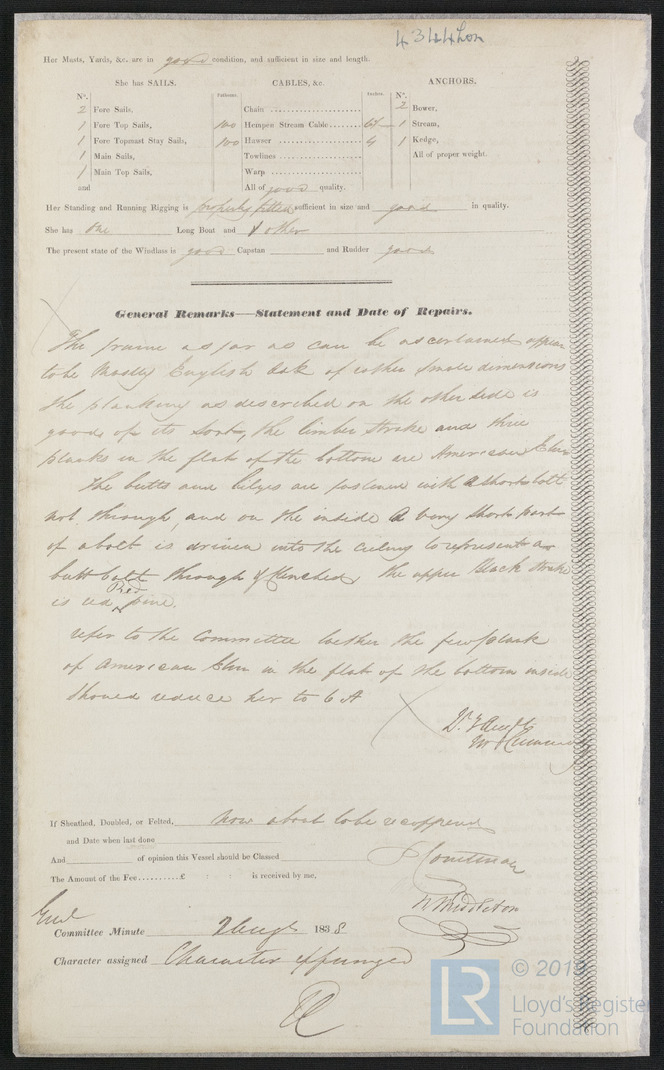 4344 Lon
Her Masts, Yards, &c. are in good condition, and sufficient in size and length.
She has SAILS.
CABLES, &c.
ANCHORS.
N°.
Fathoms.
Inches.
N°.
2 Fore Sails,
1 Fore Top Sails,
1 Fore Topmast Stay Sails,
1 Main Sails,
1 Main Top Sails,
and
Chain
100 Hempen Stream Cable
100 Hawser 4
Towlines
Warp
All of good quality.
2 Bower,
1 Stream,
1 Kedge,
All of proper weight.
Her Standing and Running Rigging is properly fitted sufficient in size and good in quality.
She has One Long Boat and 1 other
The present state of the Windlass is good Capstan and Rudder good
General Remarks—Statement and Date of Repairs.
The frame as far as can be ascertained appear
to be Mostly English Oak of rather small dimensions
the planking as described on the other side is
good of its sort, the limber strake and three
planks in the flat of the bottom are American Elm
The butts and bilges are fastened with a short bolt
not through, and on the inside a very short part
of a bolt is driven into the ceiling to represent a
butt bolt through & Clenched, the upper Black strake
is Red pine.
refer to the Committee whether the few plank
of American Elm in the flat of the bottom inside
should reduce her to 6 A
If Sheathed, Doubled, or Felted, now about to be recoppered
and Date when last done
And of opinion this Vessel should be Classed
The Amount of the Fee..........£ : : is received by me,
N Middleton
Committee Minute 2 Augt 1838
Character assigned Character expunged
LR
© 2019
Lloyd's Register
Foundation